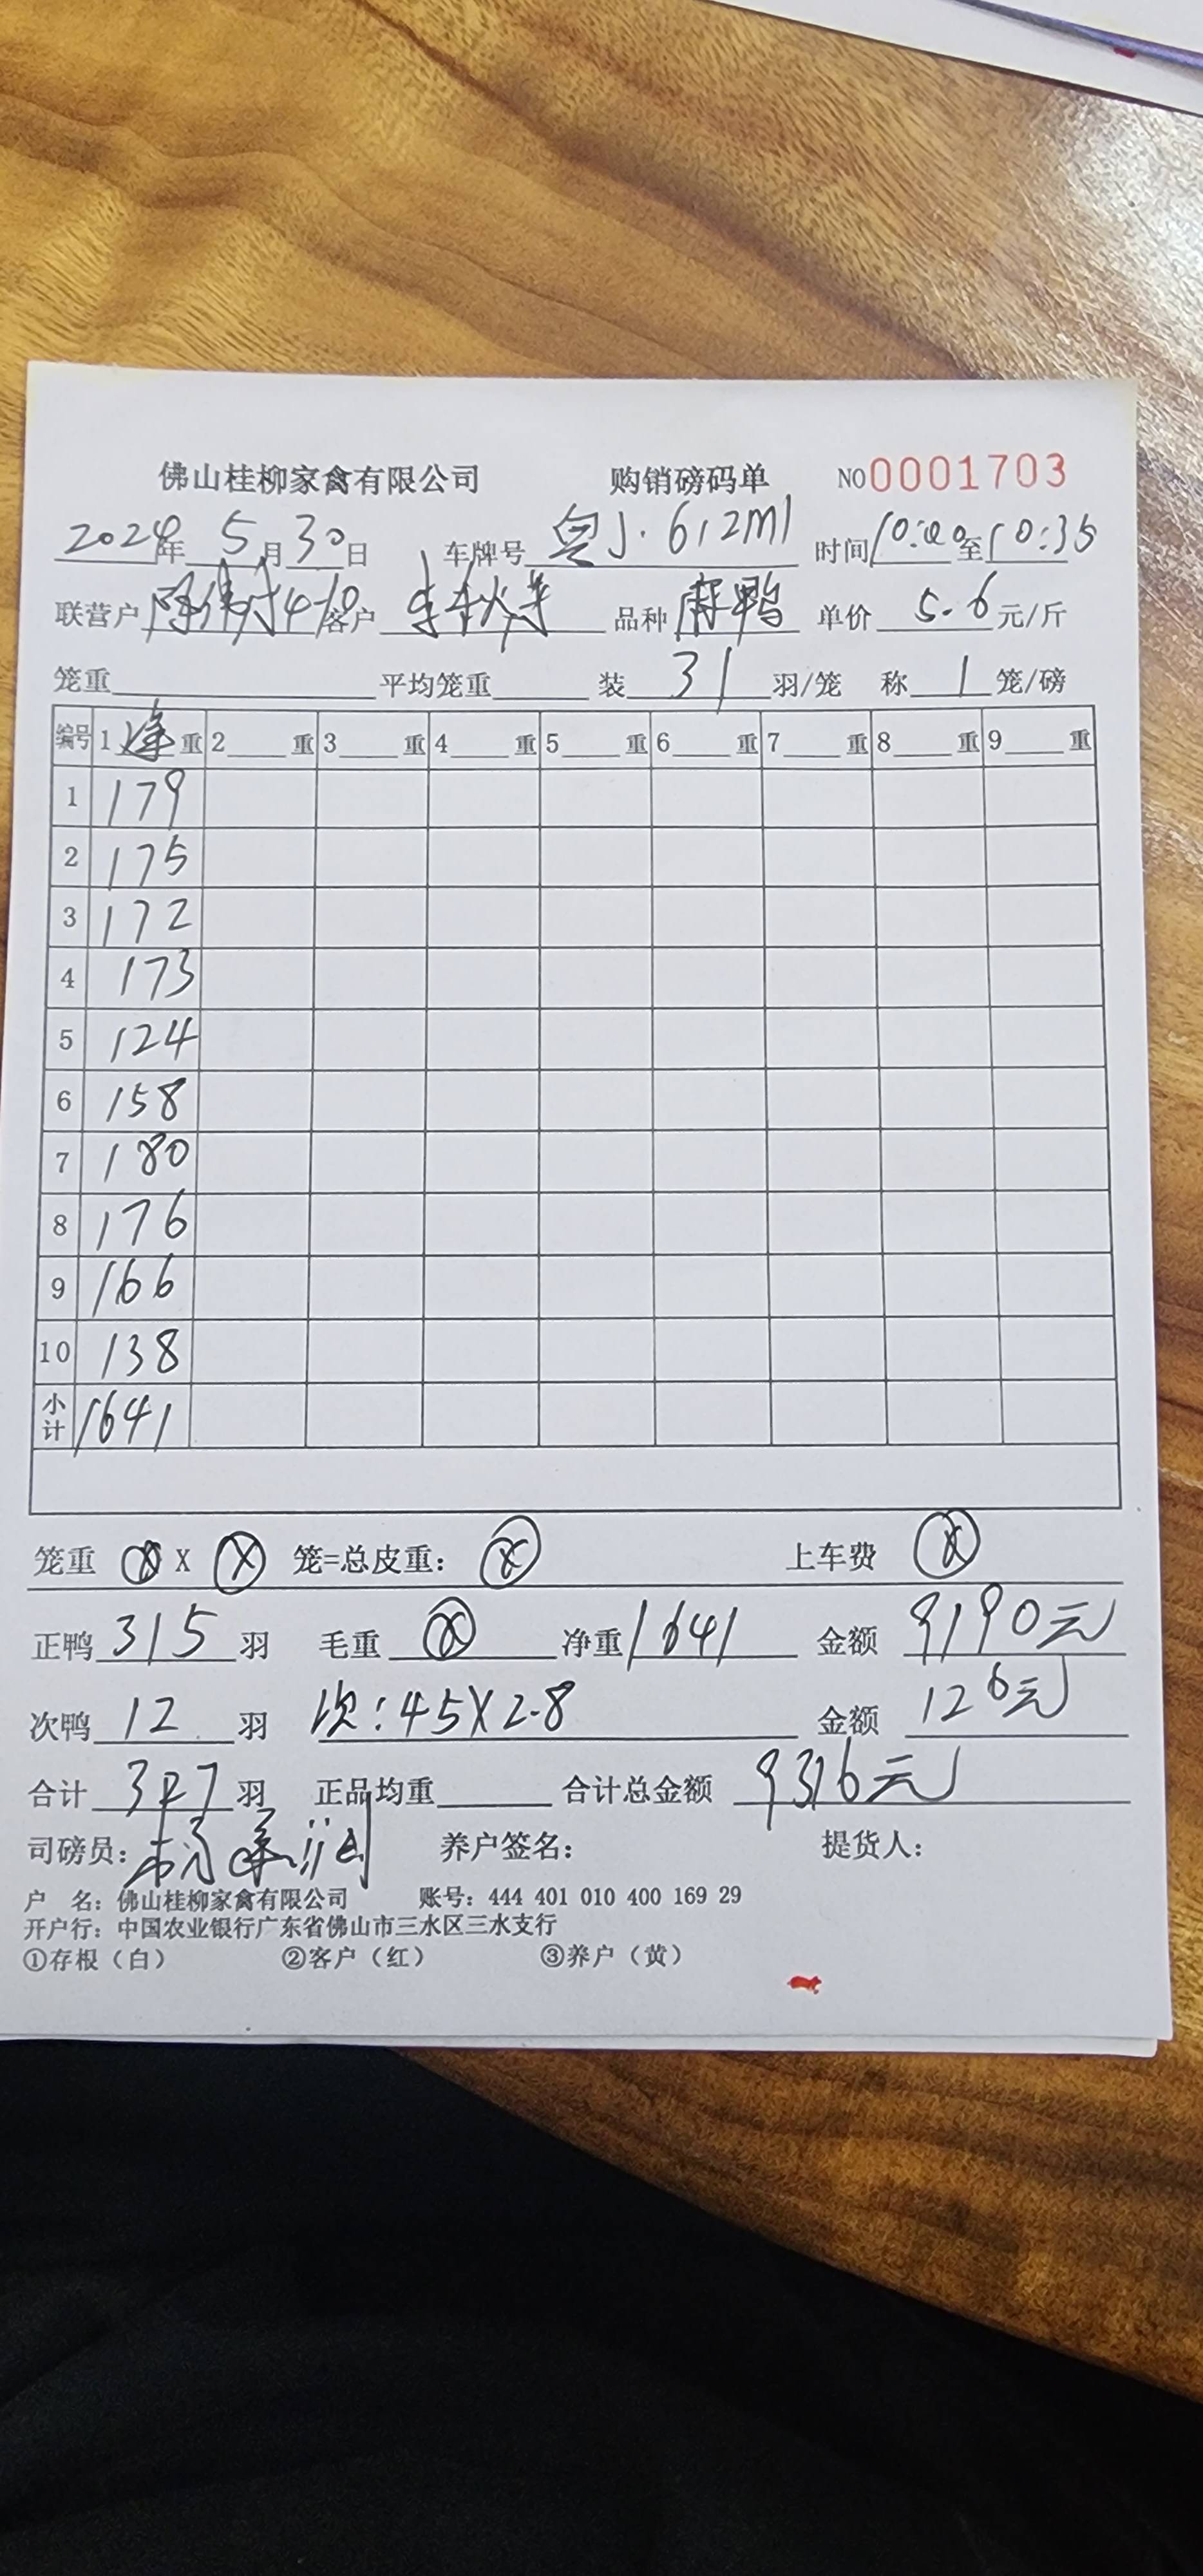 佛山桂柳家禽有限公司 购销磅码单 NO 0001703
2024年 5月 30日 车牌号 粤J·612M1 时间 10:00至10:35
联营户 4-10 客户 李秋 品种 麻鸭 单价 5.6 元/斤
笼重 平均笼重 装 31 羽/笼 称 1 笼/磅
编号 1 净 重 2 重 3 重 4 重 5 重 6 重 7 重 8 重 9 重
1 179
2 175
3 172
4 173
5 124
6 158
7 180
8 176
9 166
10 138
小计 1641
笼重 ⊗ X ⊗ 笼=总皮重: ⊗ 上车费 ⊗
正鸭 315 羽 毛重 ⊗ 净重 1641 金额 9190元
次鸭 12 羽 次:45X2.8 金额 126元
合计 327 羽 正品均重 合计总金额 9316元
司磅员: 养户签名: 提货人:
户 名: 佛山桂柳家禽有限公司 账号: 444 401 010 400 169 29
开户行: 中国农业银行广东省佛山市三水区三水支行
①存根（白） ②客户（红） ③养户（黄）